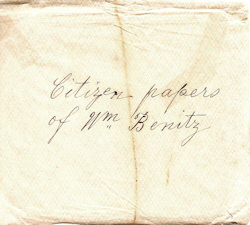 Citizen papers
of Wm Benitz